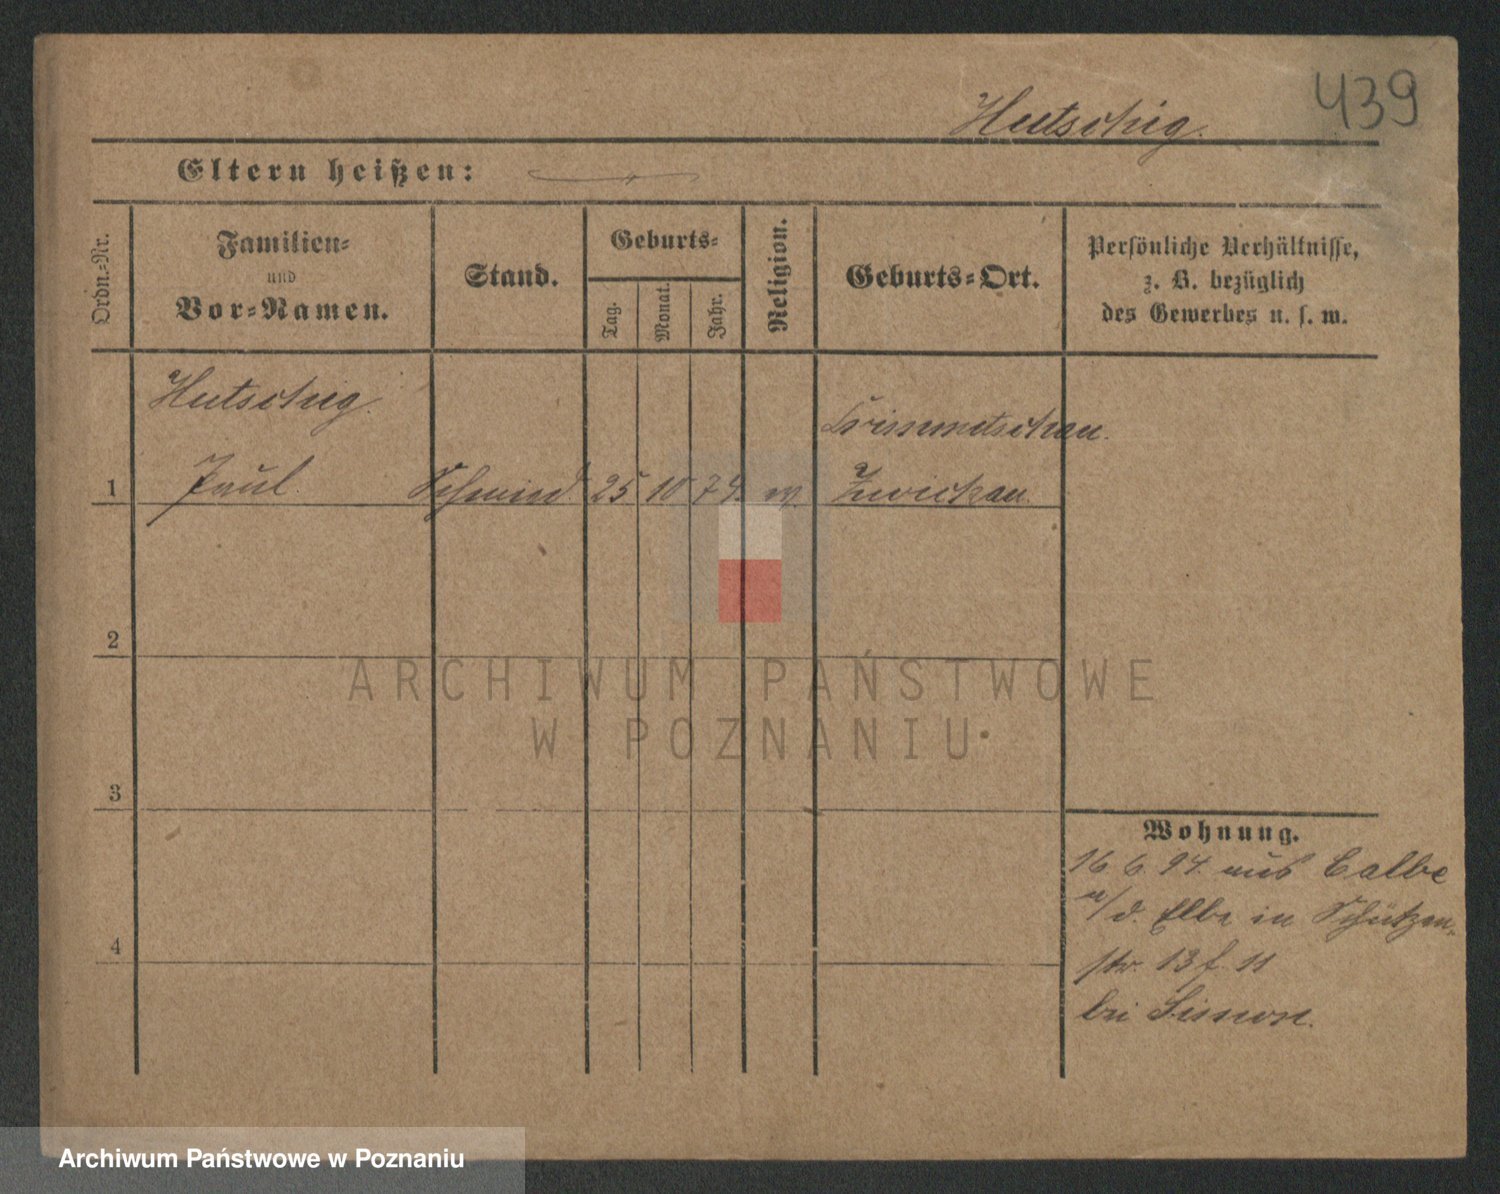 439
Hutschig.
Eltern heißen:
Ordn.-Nr.
Familien-
und
Vor-Namen.
Stand.
Geburts-
Tag.
Monat.
Jahr.
Religion.
Geburts-Ort.
Persönliche Verhältnisse,
z. B. bezüglich
des Gewerbes u. s. w.
Hutschig.
Crimmitschau.
1 Paul. Schmied 25 10 74 Zwickau.
2
ARCHIWUM PAŃSTWOWE
W POZNANIU
3
Wohnung.
16 6. 94. aus Calbe
a/d. Elbe in Schützen-
4
str. 13 f. 11
bei Simon.
Archiwum Państwowe w Poznaniu